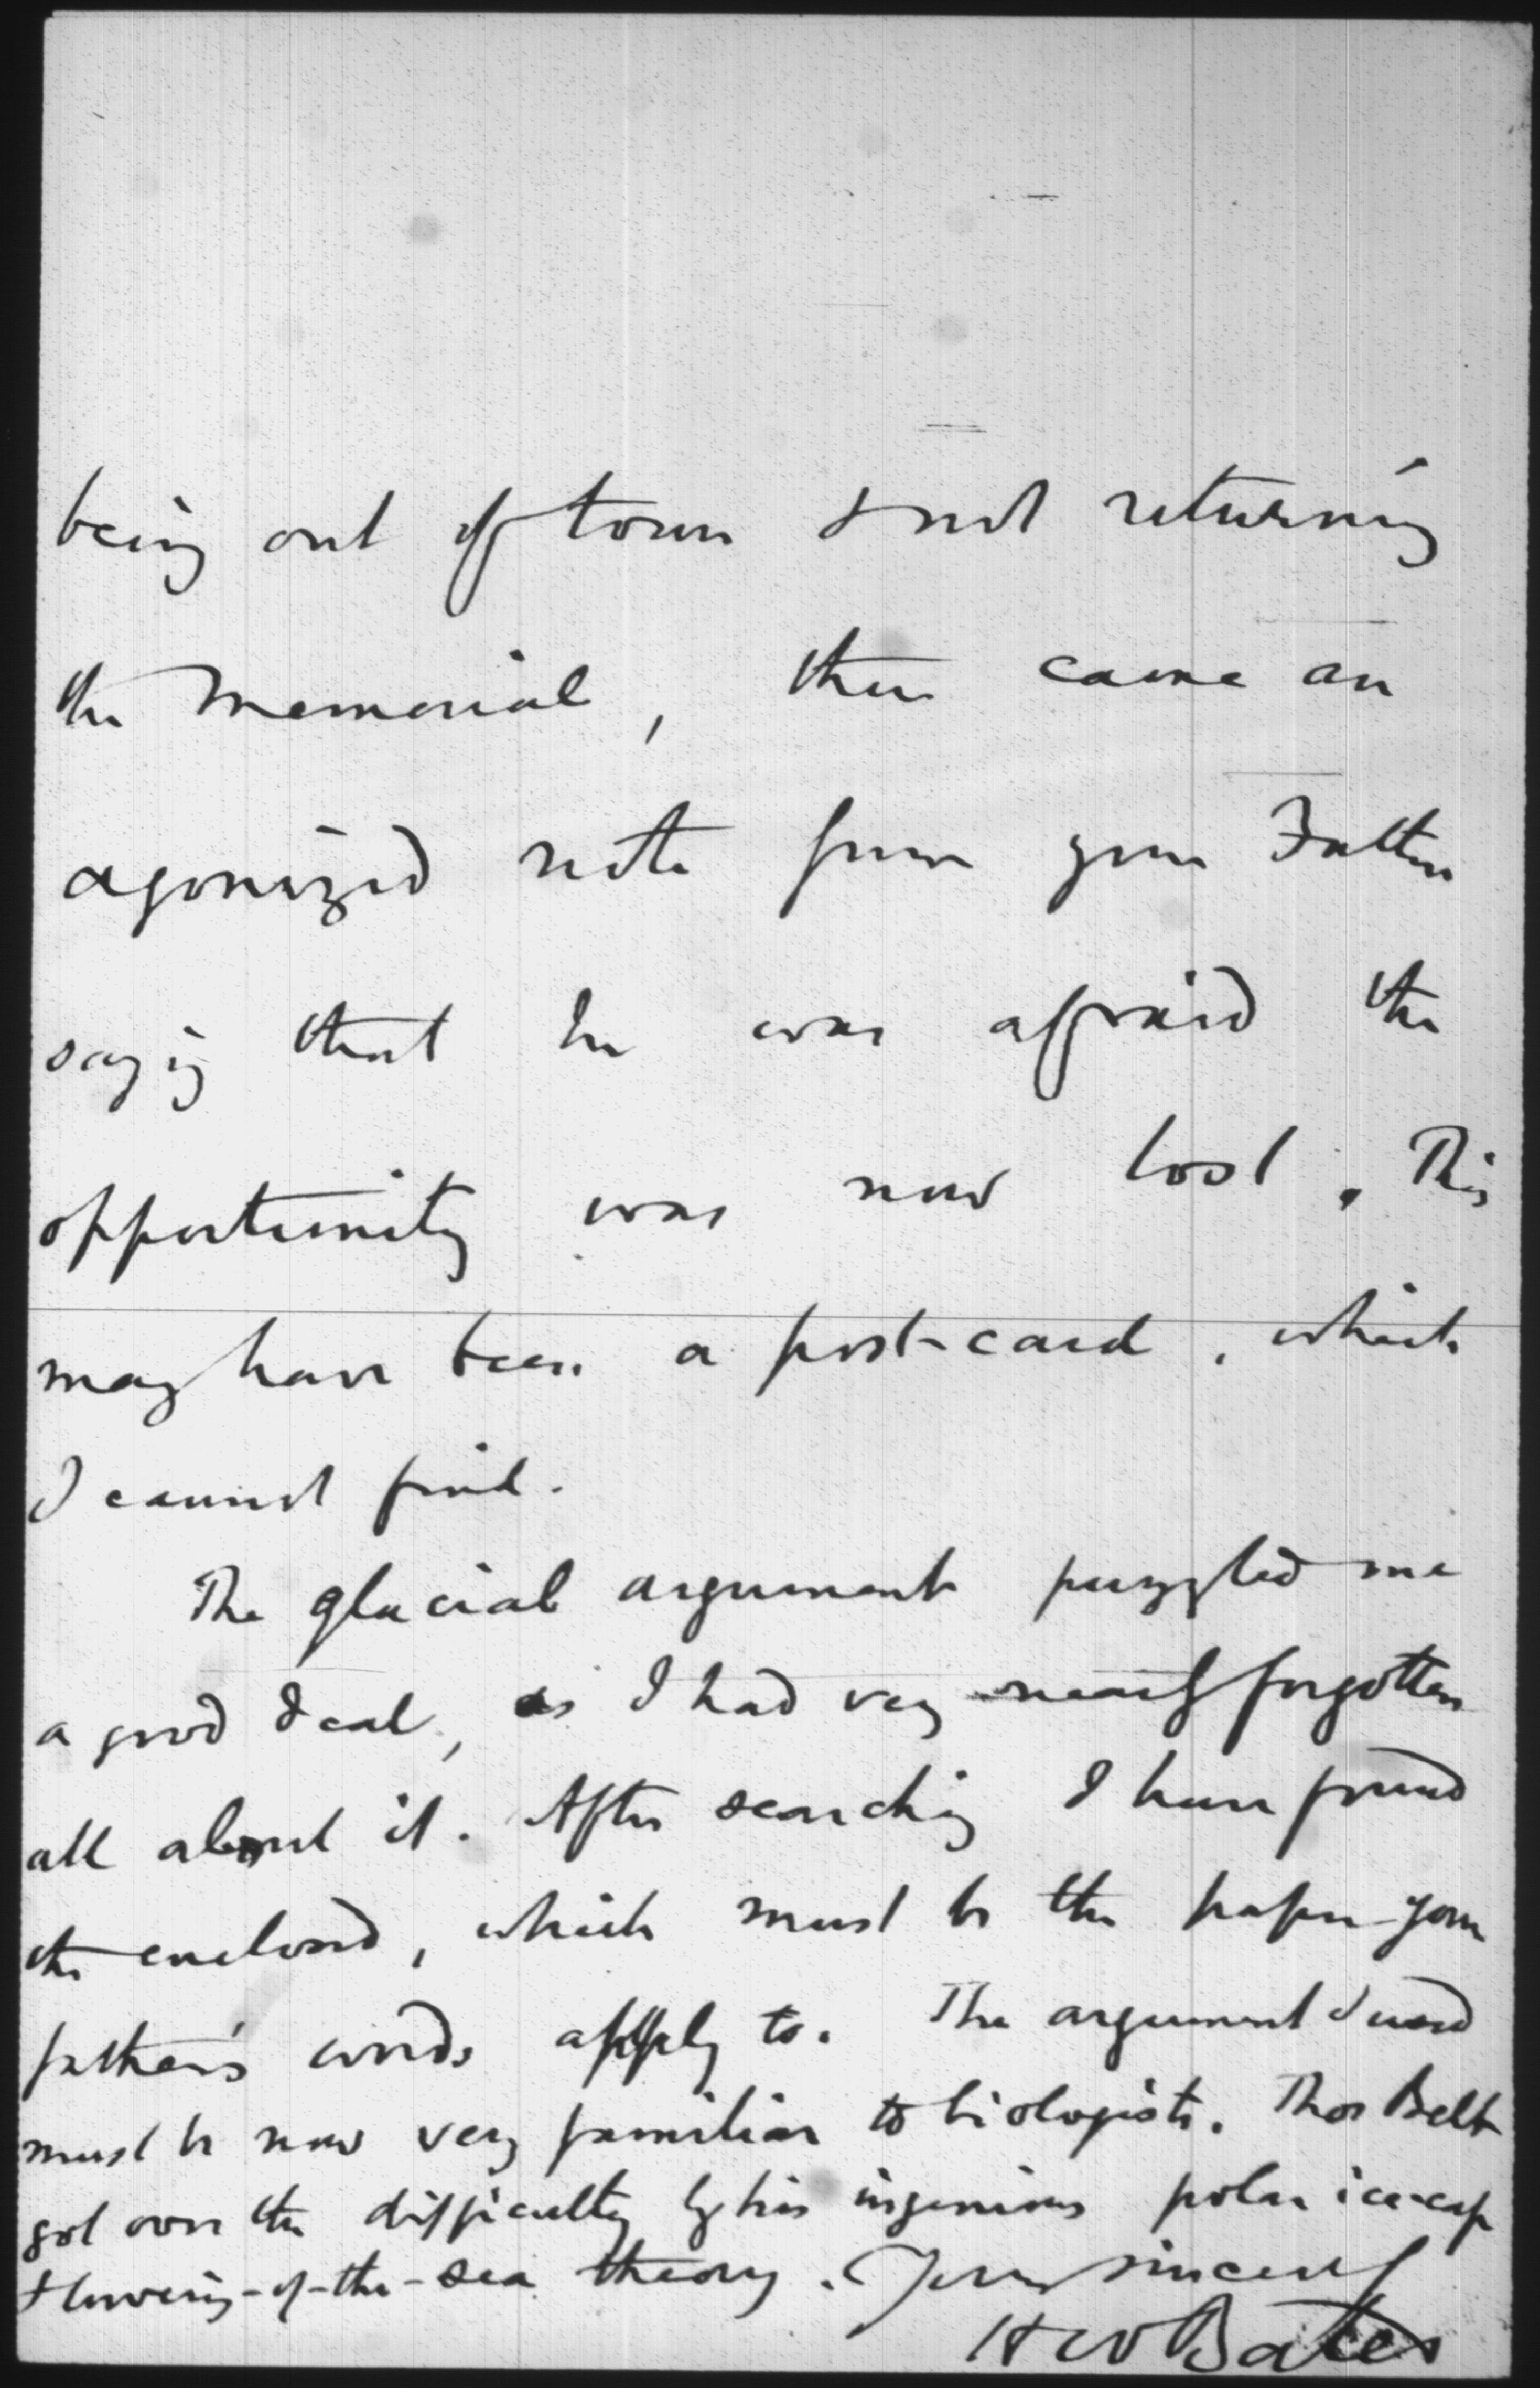 being out of town & not returning
the Memorial, then came an
agonized note from your Father
saying that he was afraid the
opportunity was now lost. This
may have been a post-card, which
I cannot find.
The glacial argument puzzled me
a good deal, as I had very nearly forgotten
all about it. After searching I have found
the enclosed, which must be the paper your
father's words apply to. The argument I used
must be now very familiar to biologists. Thos Belt
got over the difficulty by his ingenious polar ice-cap
& lowering-of-the-sea theory. Yours sincerely
H W Bates